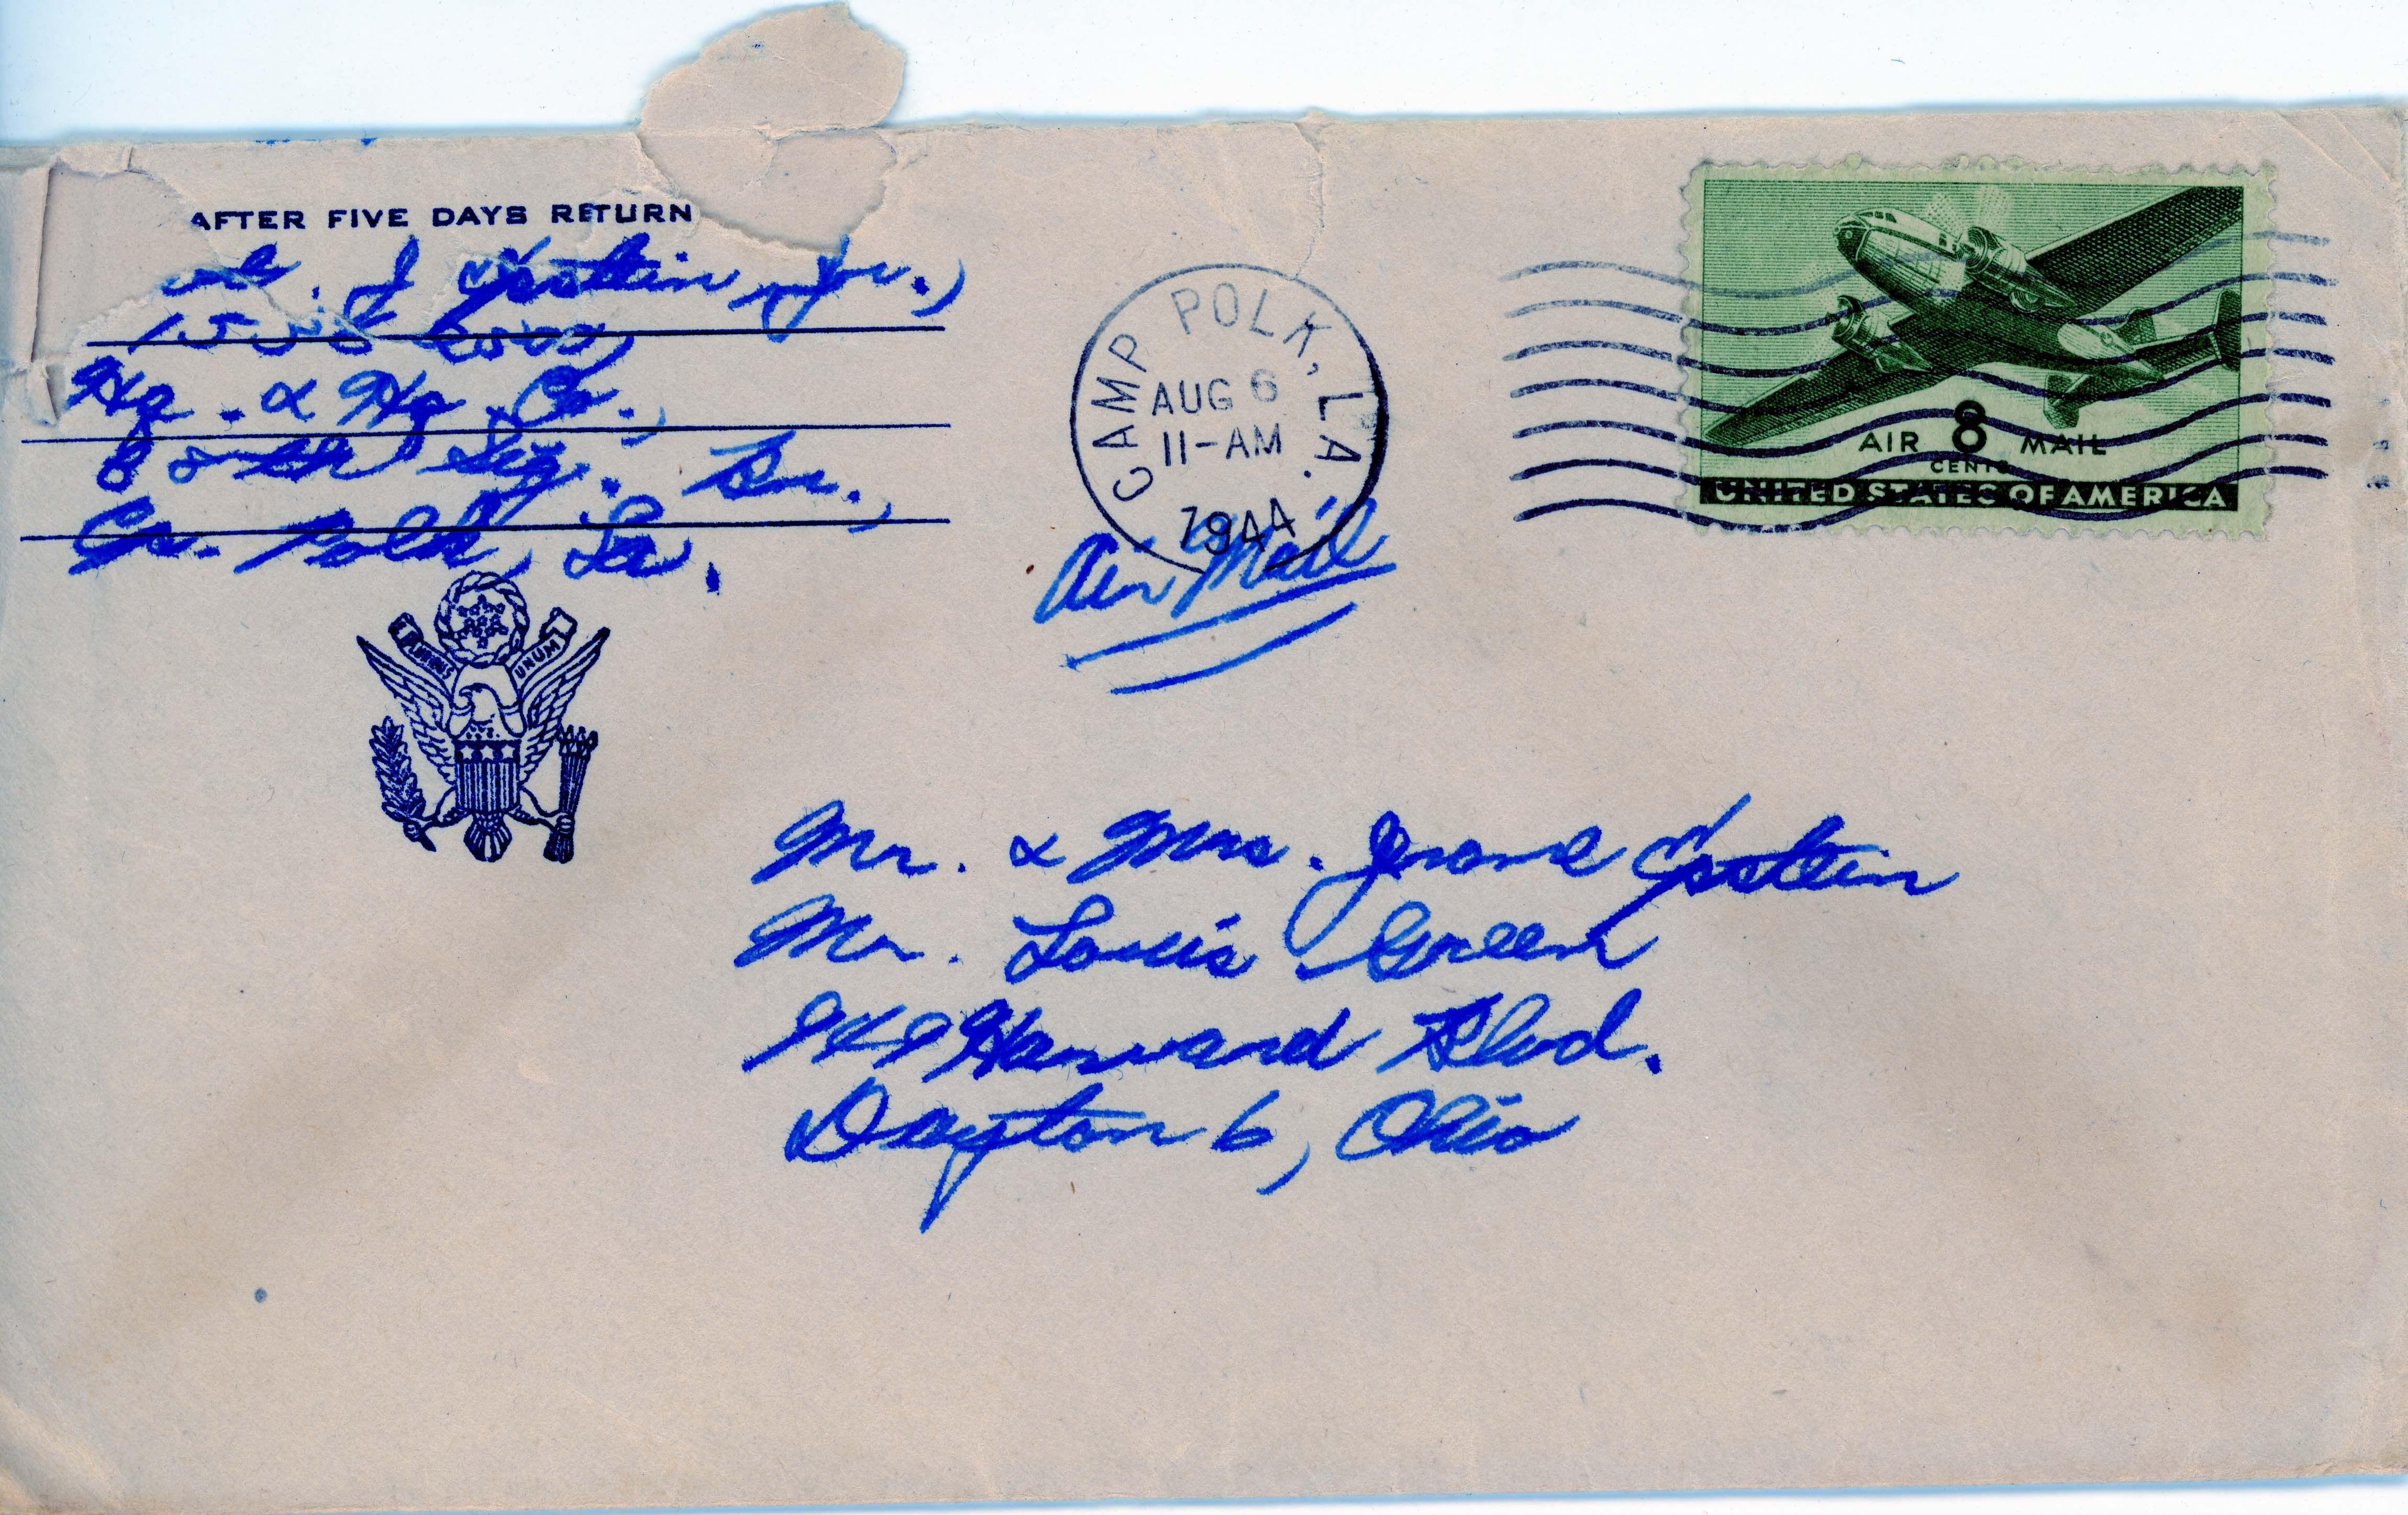 AFTER FIVE DAYS RETURN
J Epstein, Jr.,
Hq. & Hq. Co.,
80th Sig. Bn.,
Cp. Polk, La.
E PLURIBUS UNUM
CAMP POLK, LA.
AUG 6
11-AM
1944
Air Mail
AIR 8 MAIL
CENTS
UNITED STATES OF AMERICA
Mr. & Mrs. Jerome Epstein
Mr. Louis Green
949 Harvard Blvd.
Dayton 6, Ohio